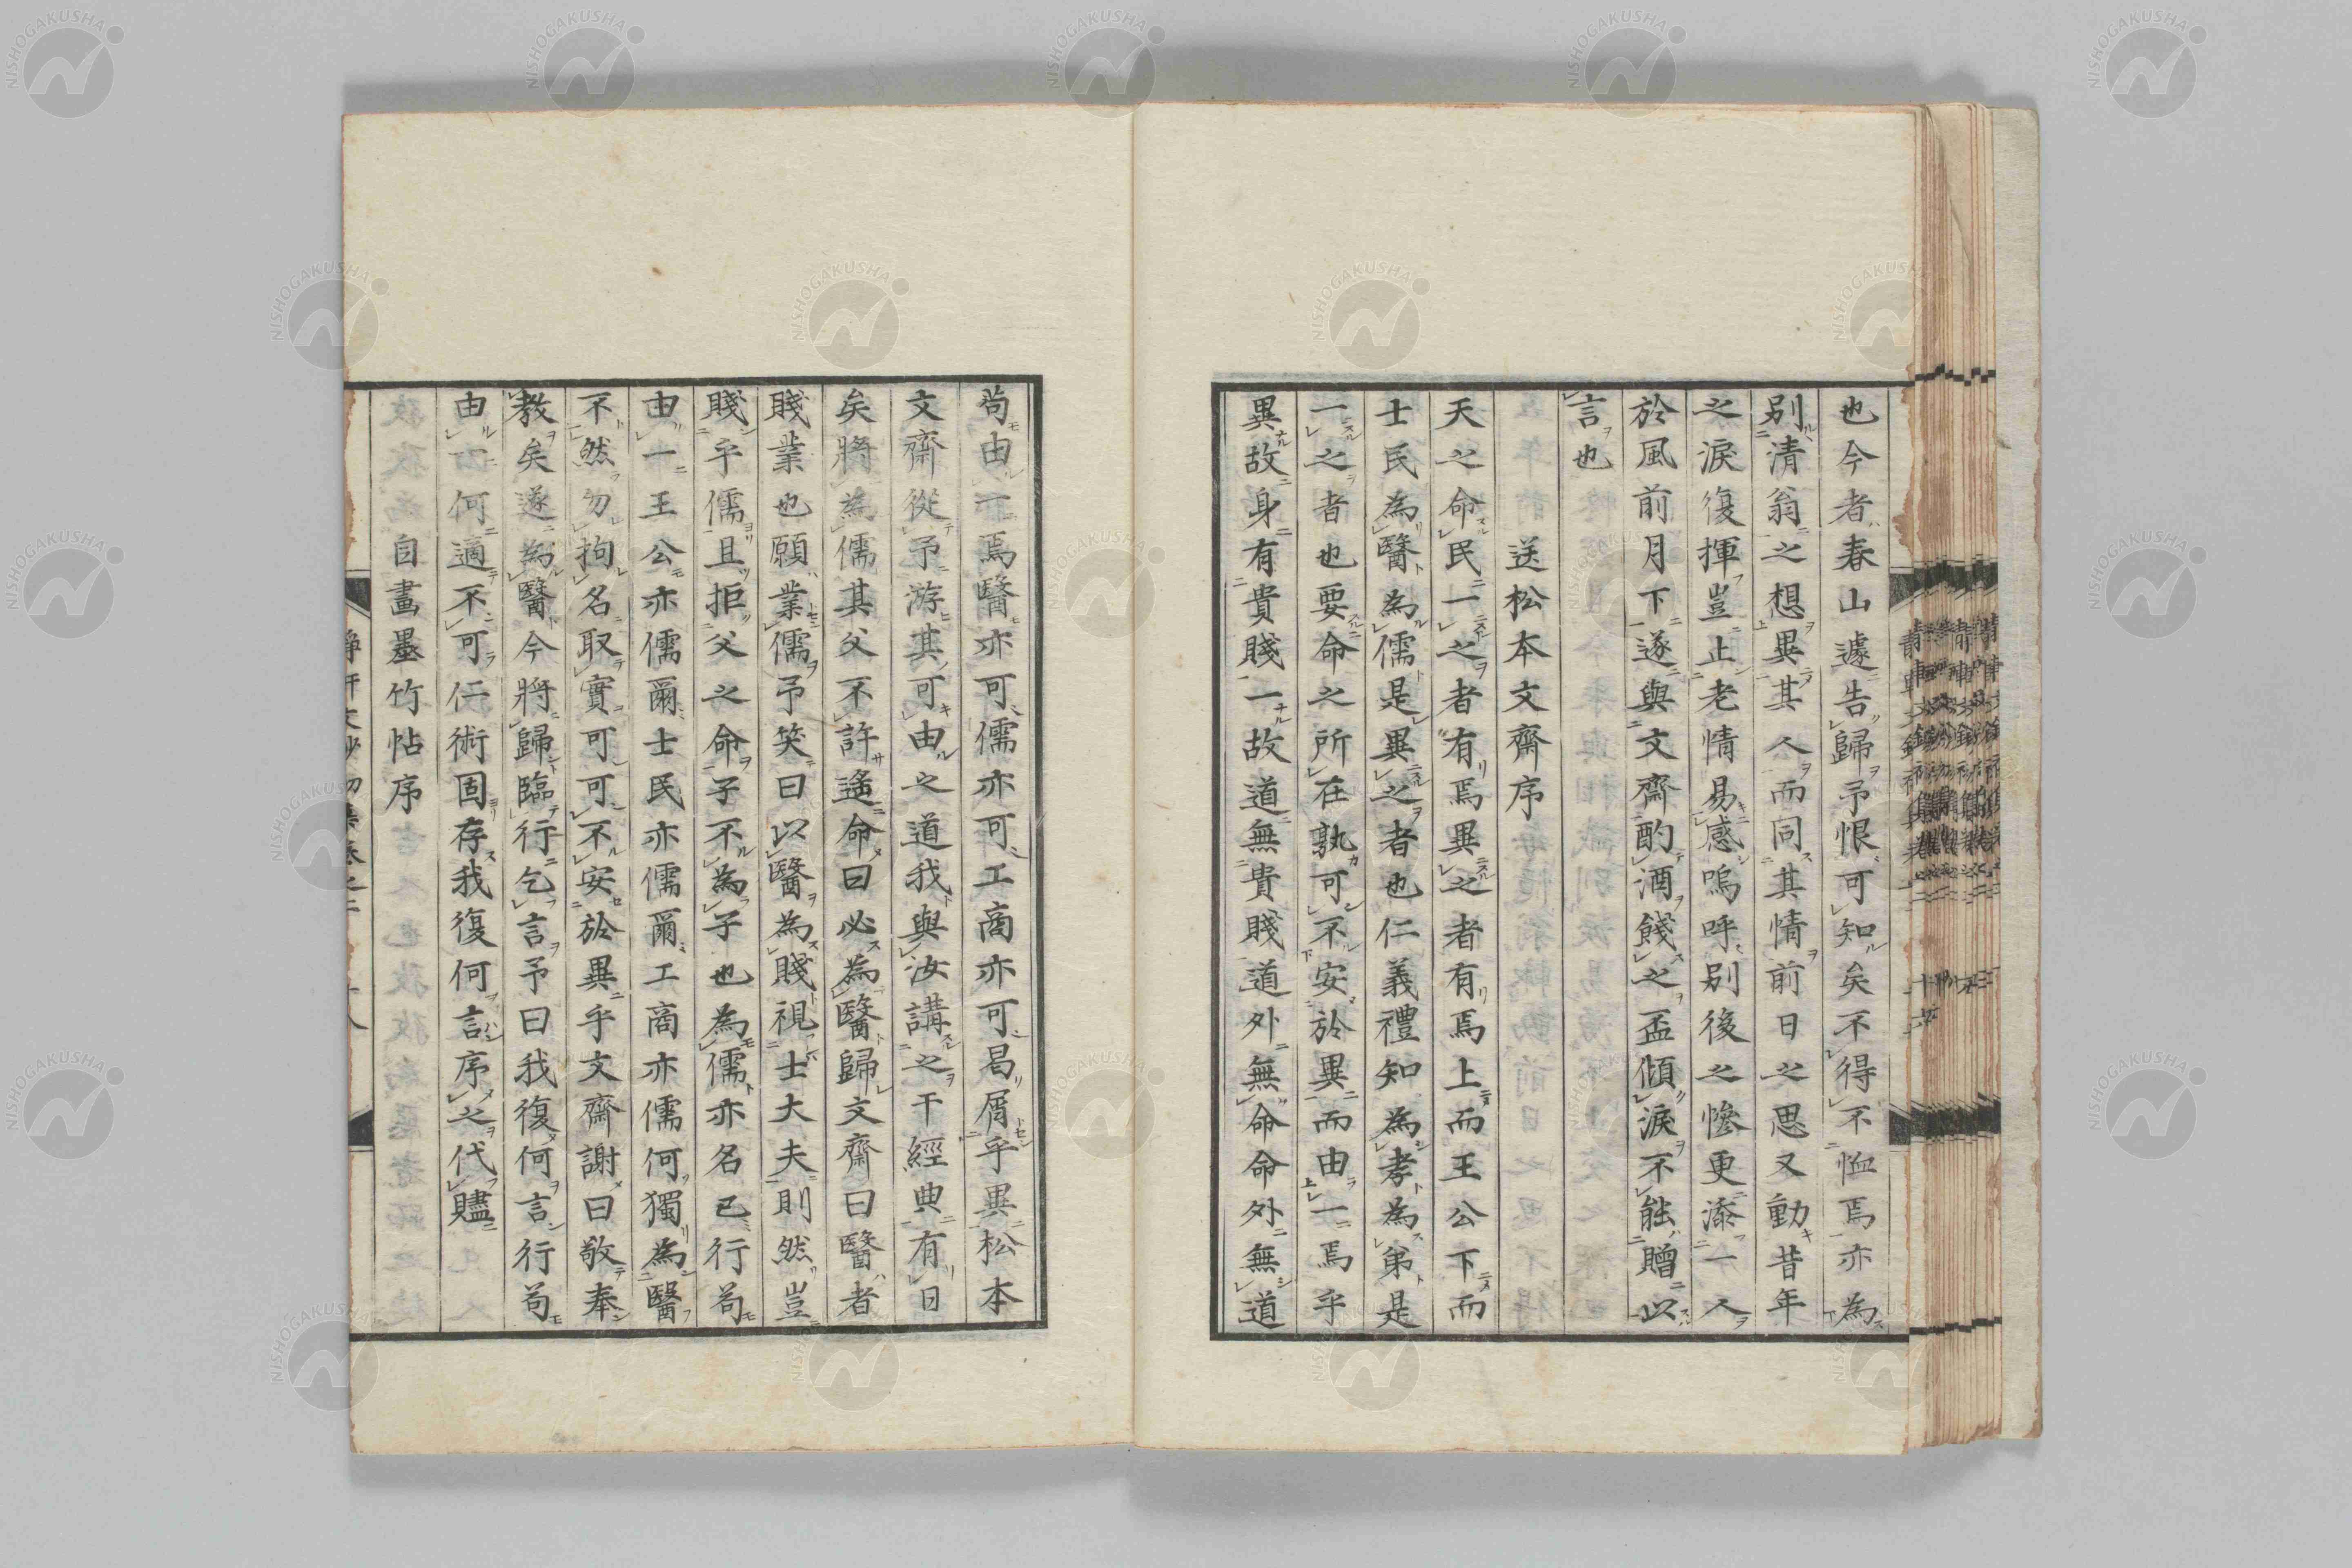 也今者春山遽告歸予恨可知矣不得不恤焉亦為
別清翁之想異其人而同其情前日之思又動昔年
之淚復揮豈止老情易感嗚呼別後之慘更添一人
於風前月下遂與文齋酌酒餞之盃傾淚不能贈以
言也
送松本文齋序
天之命民一之者有焉異之者有焉上而王公下而
士民為醫為儒是異之者也仁義禮知為孝為弟是
一之者也要命之所在孰可不安於異而由一焉乎
異故身有貴賤一故道無貴賤道外無命命外無道
苟由一焉醫亦可儒亦可工商亦可曷屑乎異松本
文齋從予游其可由之道我與汝講之干經典有日
矣將為儒其父不許遙命曰必為醫歸文齋曰醫者
賤業也願業儒予笑曰以醫為賤視士大夫則然豈
賤乎儒且拒父之命子不為子也為儒亦名已行苟
由一王公亦儒爾士民亦儒爾工商亦儒何獨為醫
不然勿拘名取實可可不安於異乎文齋謝曰敬奉
教矣遂為醫今將歸臨行乞言予曰我復何言行苟
由一何適不可仁術固存我復何言序之代贐
自畫墨竹帖序